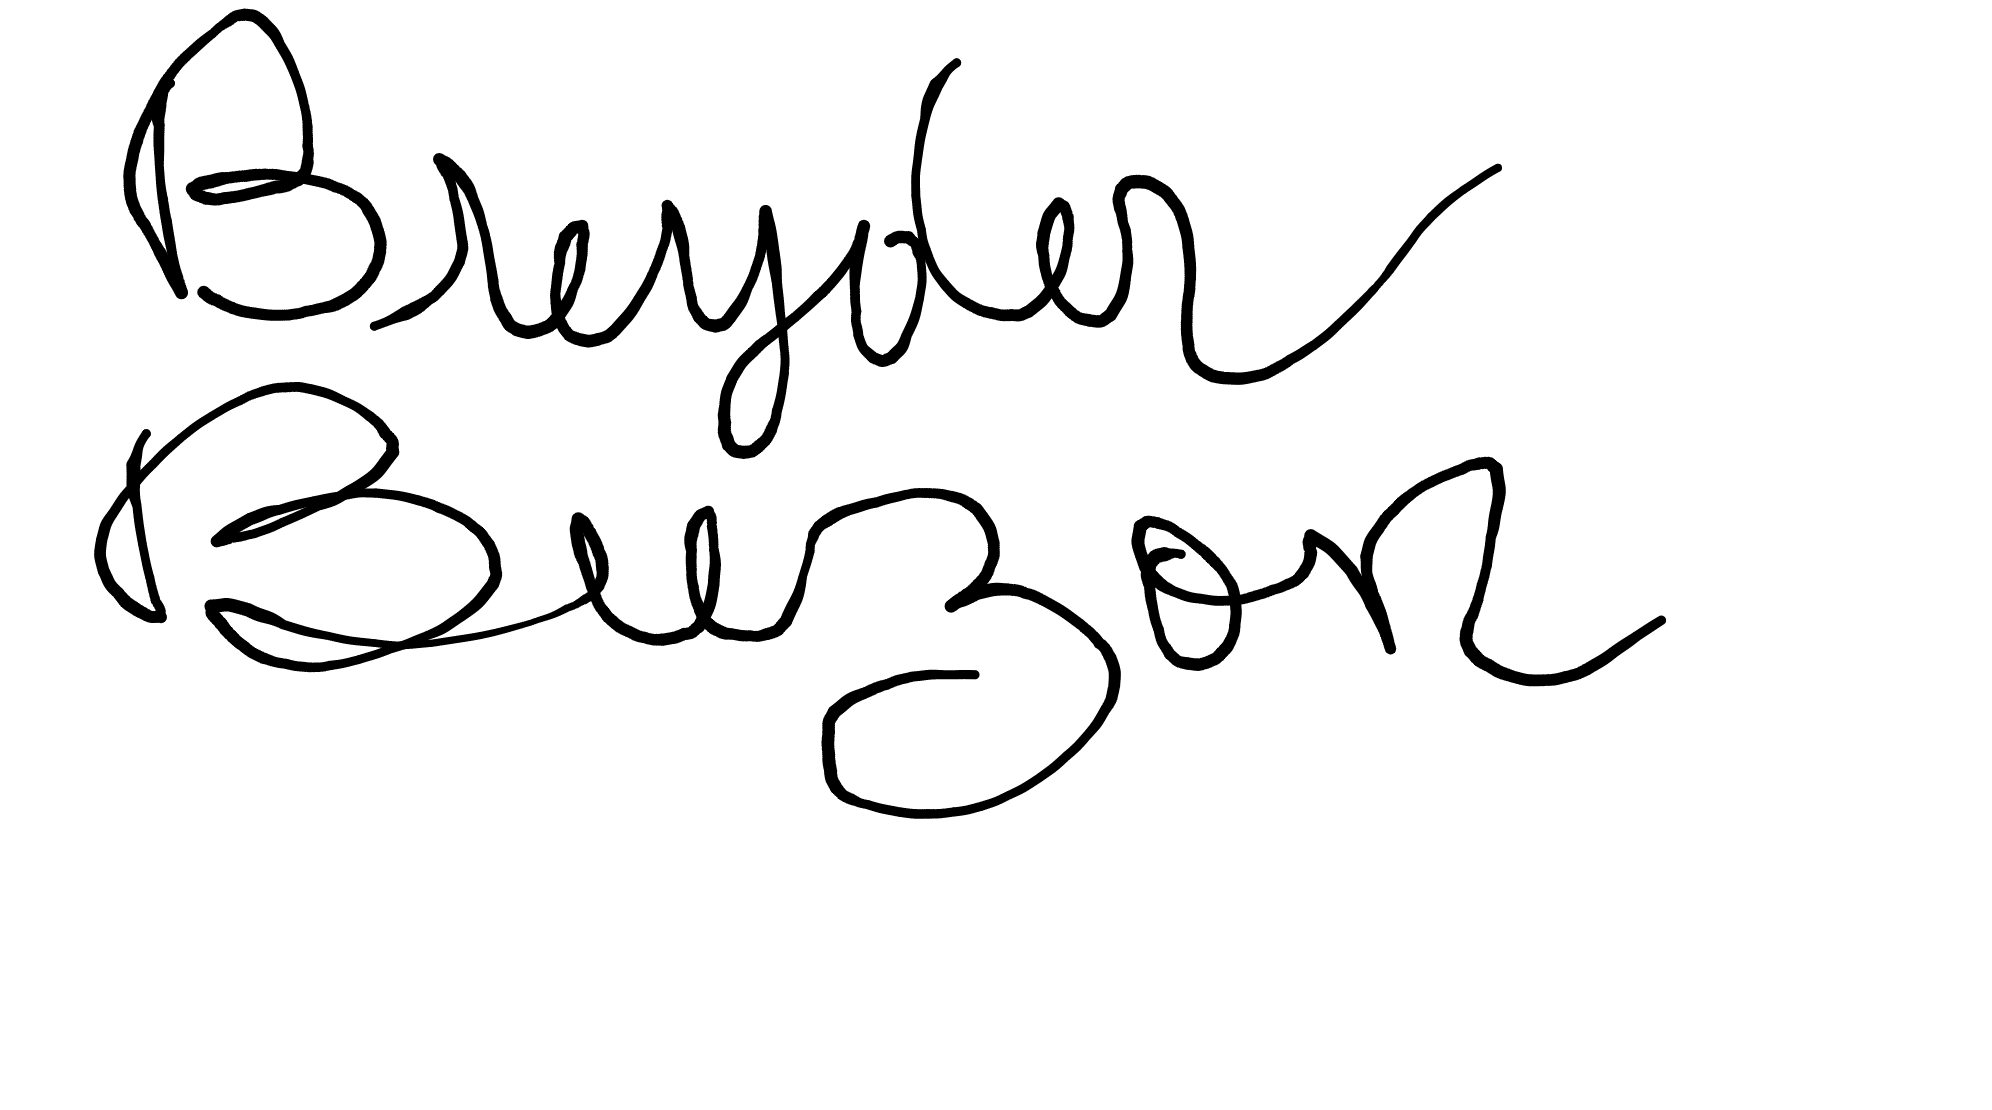 Breyder
Buzon